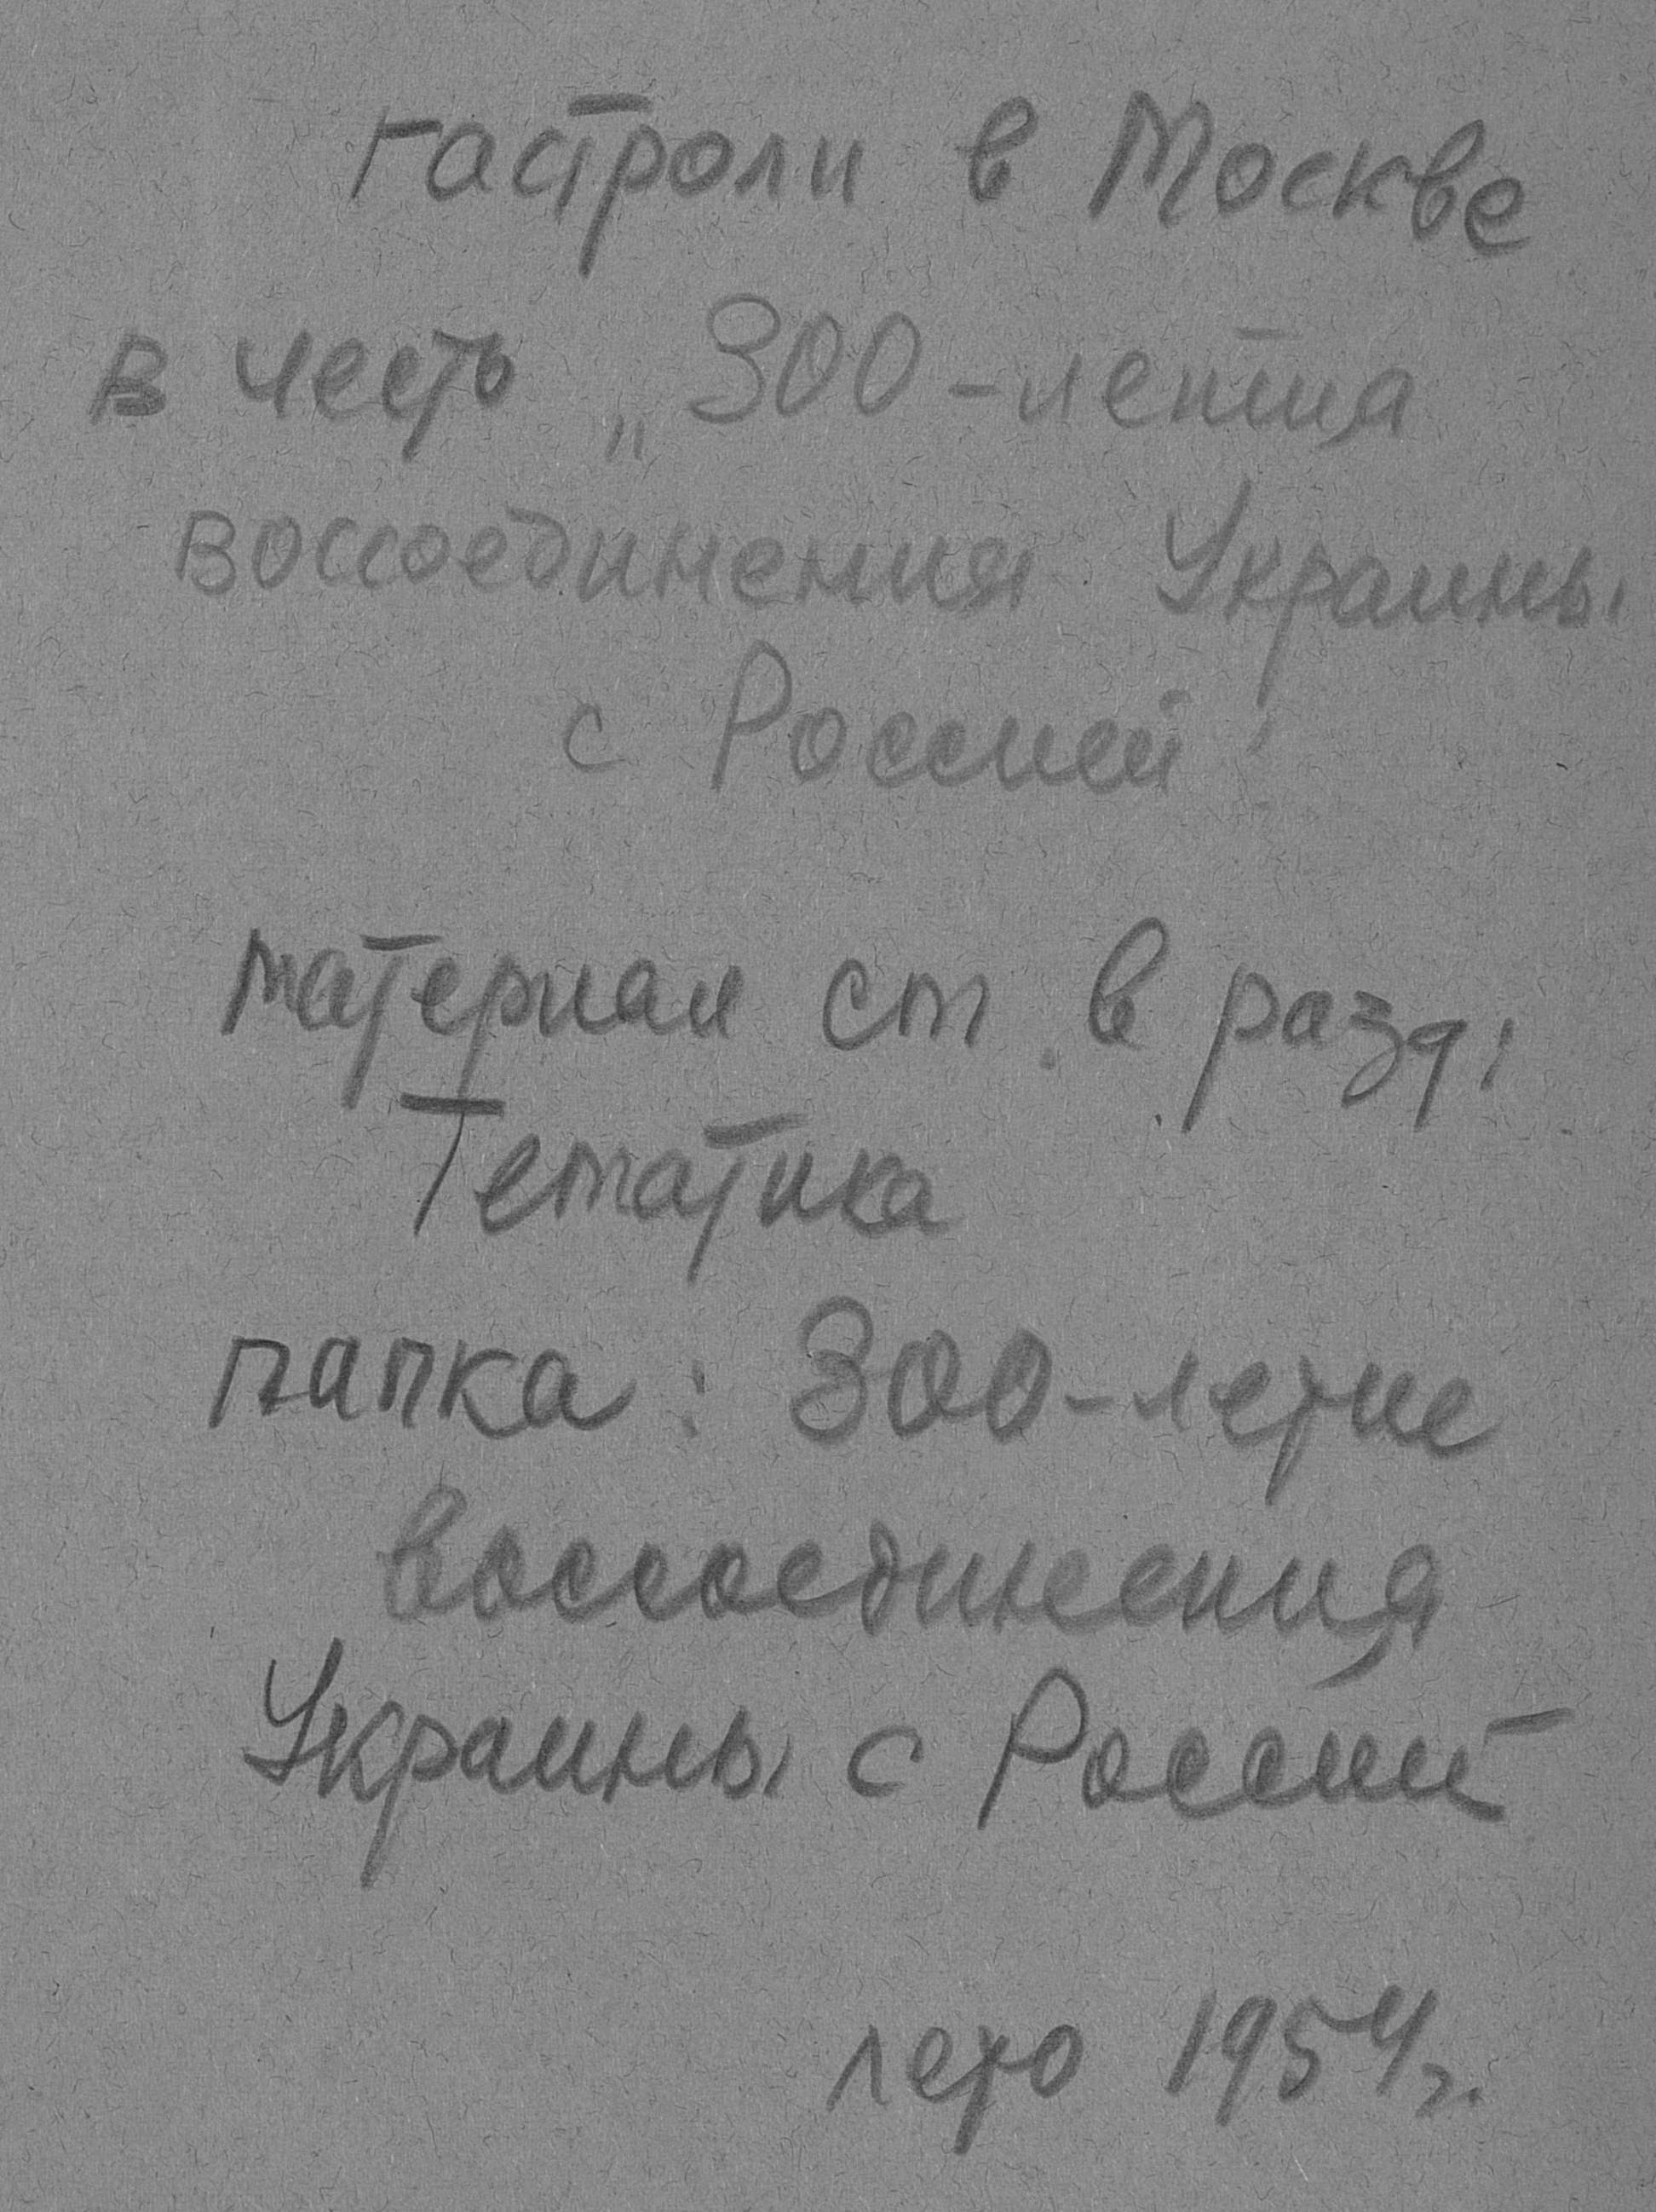 гастроли в Москве
в честь „300-летия
воссоединения Украины
с Россией"
материал см. в разд:
Тематика
папка: 300-летие
воссоединения
Украины с Россией
лето 1954г.